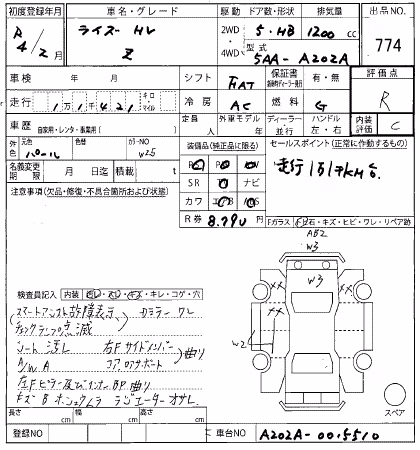 初度登録年月 車名・グレード 駆動 ドア数・形状 排気量 出品NO.
R 4/2月 ライズ HV Z 2WD 4WD 5・HB 1200 cc 774
型式 5AA-A202A
車検 年 月 シフト FAT 保証書 有・無 評価点 R
走行 11,421 キロ・マイル 冷房 AC 燃料 G
車歴 自家用・レンタ・事業用( ) 定員 人 外車モデル 年 ディーラー・並行 ハンドル 左・右 内装評価 C
外色 元色 パール 色替 カラーNO W25
装備品(純正品に限る) セールスポイント(正常に作動するもの)
名義変更期限 月 日迄 積載 t
SR ナビ
カワ
走行
R券 8,790円
注意事項(欠品・修復・不具合箇所および状態)
Fガラス 石・キズ・ヒビ・ワレ・リペア跡
AB2
W3
W3
XX XX
XX
W2
検査員記入 内装 キレ・コゲ・穴
スマートアシスト故障表示 カミラー ワレ
チェックランプ点滅
シート汚レ 右Fサイドメンバー
A/W A コアサポート 曲リ
左Fピラー及びインナーBP曲リ
キズB ホシュウムラ ラジエーターオサレ
スペア
長さ cm 幅 cm 高さ cm
登録NO 車台NO A202A-0015510